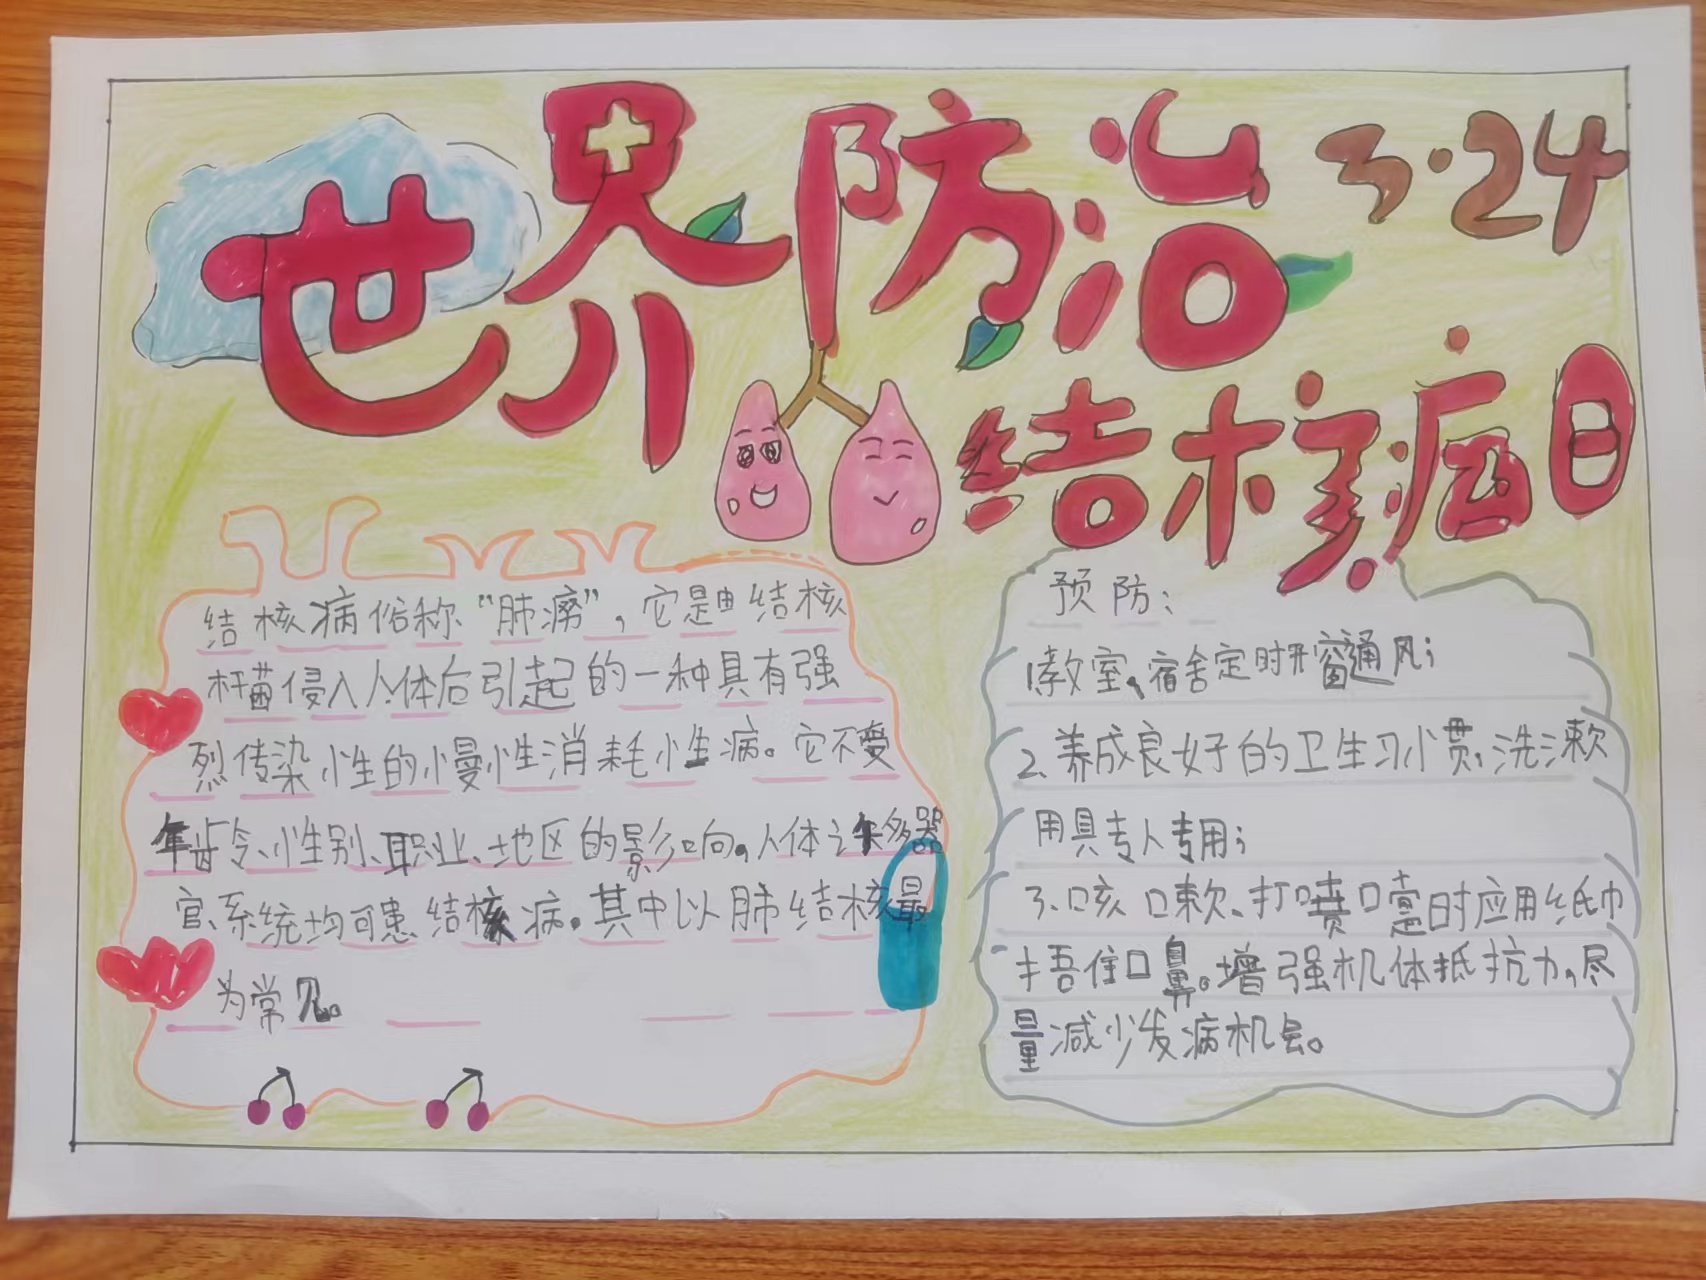 世界防治
3·24
结核病日
结核病俗称“肺痨”，它是由结核
杆菌侵入人体后引起的一种具有强
烈传染性的慢性消耗性病。它不受
年龄、性别、职业、地区的影响，人体许多器
官、系统均可患结核病。其中以肺结核最
为常见。
预防：
1教室、宿舍定时开窗通风；
2、养成良好的卫生习惯，洗漱
用具专人专用；
3、咳嗽、打喷嚏时应用纸巾
捂住口鼻。增强机体抵抗力，尽
量减少发病机会。